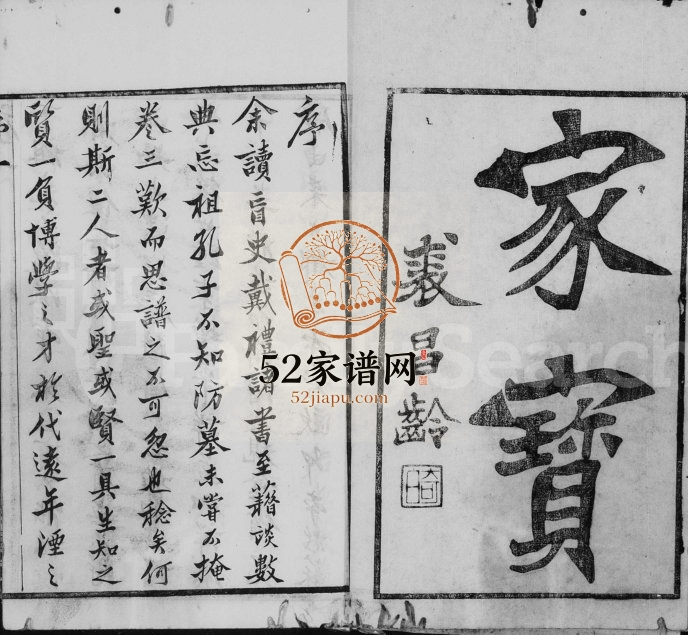 家寶
裘昌齡
序
余讀盲史戴禮諸書至籍談數
典忘祖孔子不知防墓未嘗不掩
卷三歎而思譜之不可忽也稔矣何
則斯二人者或聖或賢一具生知之
賢一負博學之才於代遠年湮之
52家谱网
52jiapu.com
Search